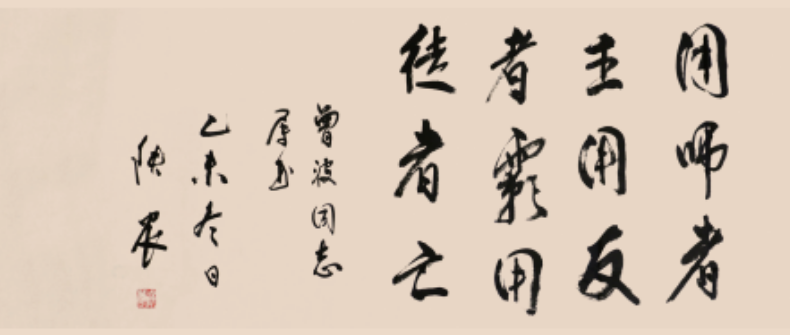 用师者
王用友
者霸用
徒者亡
曾波同志
属书
乙未冬日
陕农